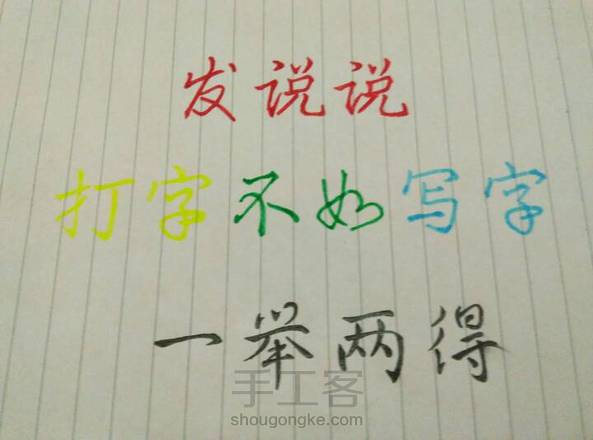 发说说
打字不如写字
一举两得
手工客
shougongke.com